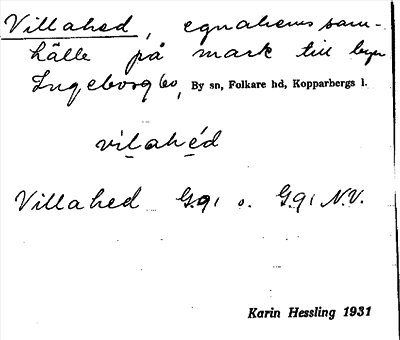 Villahed, egnahemssam-
hälle på mark till byn
Ingeborgbo, By sn, Folkare hd, Kopparbergs l.
vilahéd
Villahed G.91 o. G.91 N.V.
Karin Hessling 1931